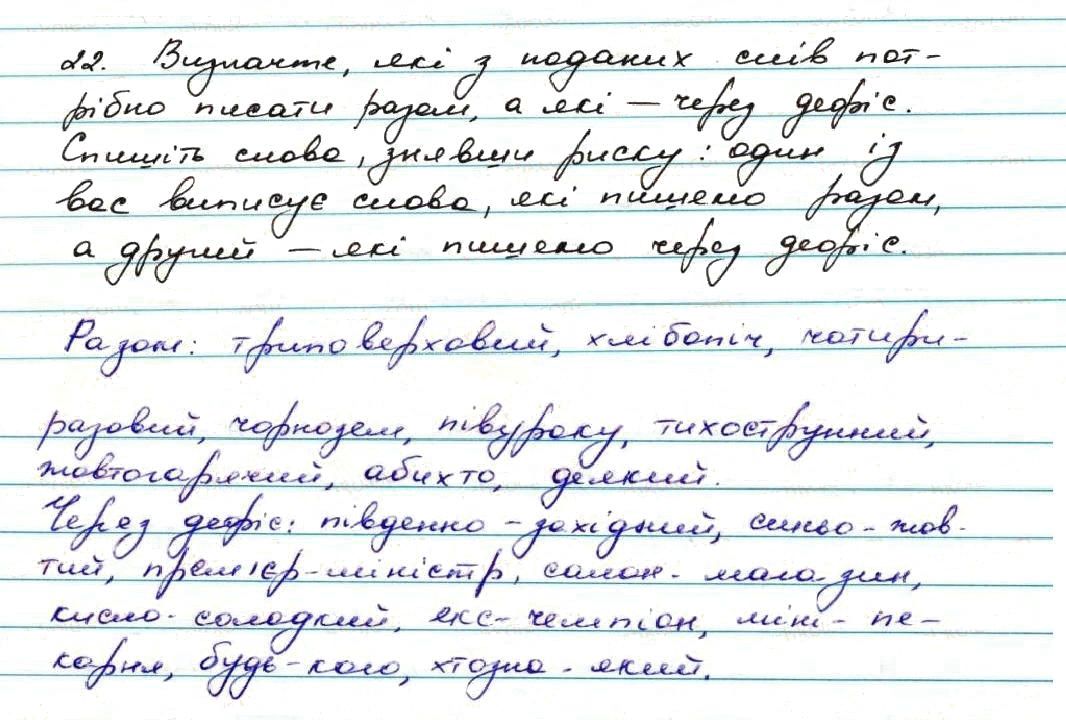 22. Визначте, які з поданих слів пот-
рібно писати разом, а які — через дефіс.
Спишіть слова, знявши риску: один із
вас виписує слова, які пишемо разом,
а другий — які пишемо через дефіс.
Разом: триповерховий, хлібопіч, чотири-
разовий, чорнозем, півуроку, тихострунний,
жовтогарячий, абихто, деякий.
Через дефіс: південно-західний, синьо-жов-
тий, прем'єр-міністр, салон-магазин,
кисло-солодкий, екс-чемпіон, міні-пе-
карня, будь-кого, хтозна-який.